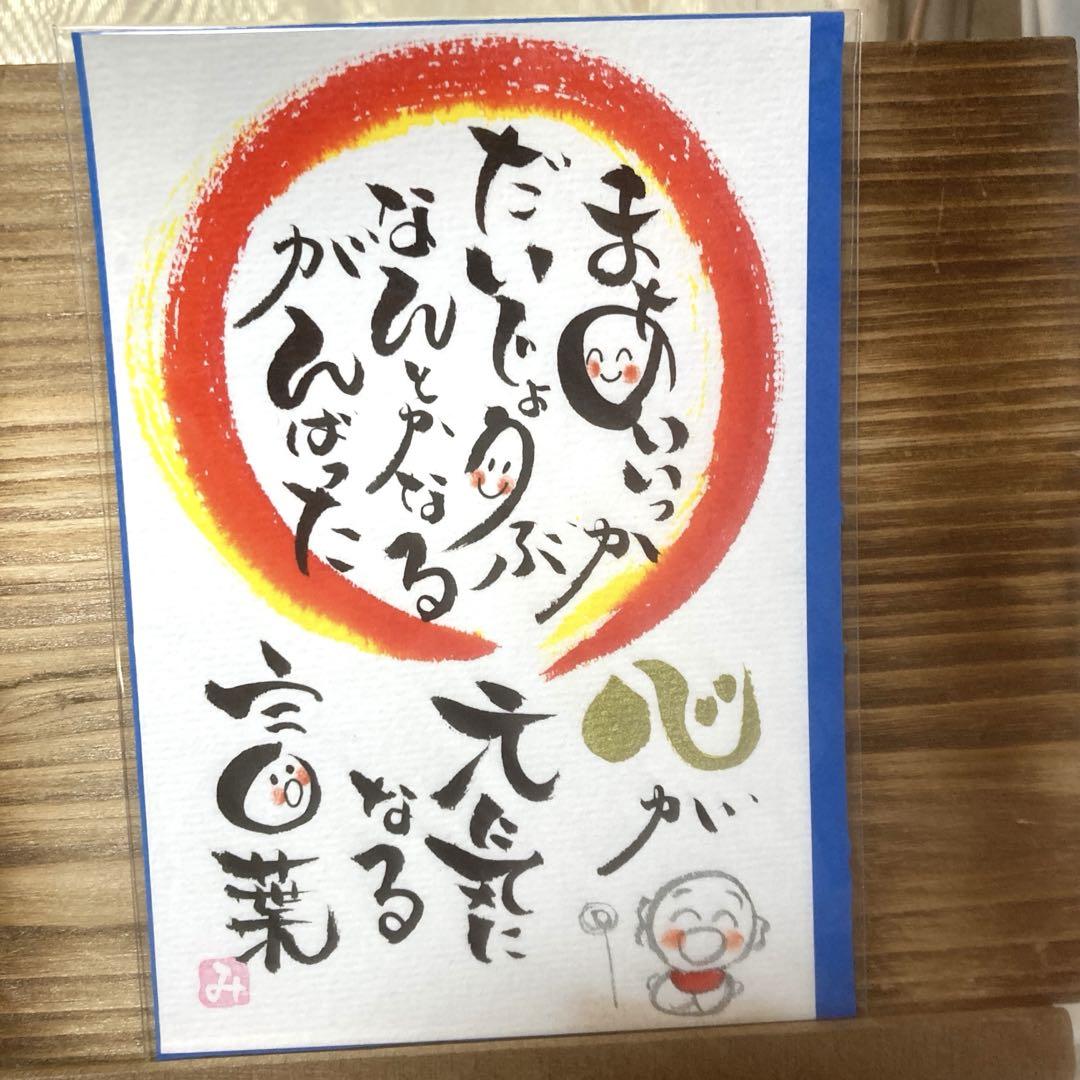 まあいいっか
だいじょうぶ
なんとかなる
がんばった
心が
元気に
なる
言葉
み